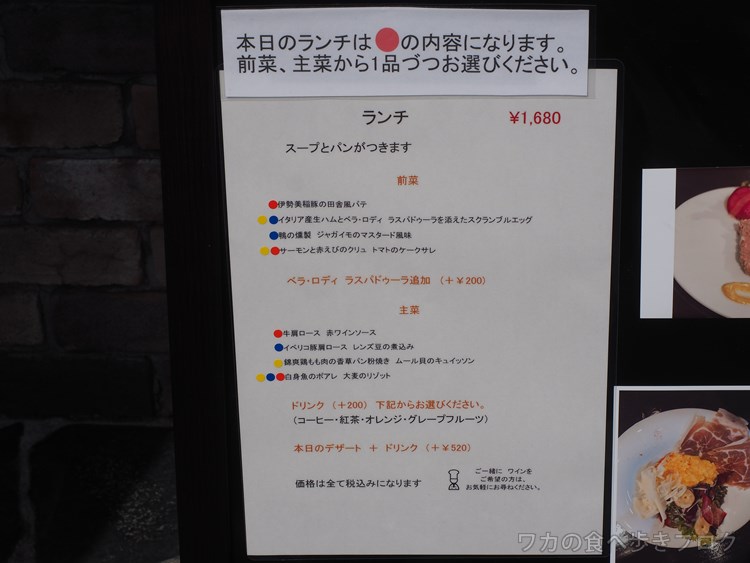 本日のランチは●の内容になります。
前菜、主菜から1品づつお選びください。
ランチ ¥1,680
スープとパンがつきます
前菜
●伊勢美稲豚の田舎風パテ
●●イタリア産生ハムとベラ・ロディ ラスパドゥーラを添えたスクランブルエッグ
●鴨の燻製 ジャガイモのマスタード風味
●●サーモンと赤えびのクリュ トマトのケークサレ
ベラ・ロディ ラスパドゥーラ追加 (+¥200)
主菜
●牛肩ロース 赤ワインソース
●イベリコ豚肩ロース レンズ豆の煮込み
●錦爽鶏もも肉の香草パン粉焼き ムール貝のキュイッソン
●●●白身魚のポアレ 大麦のリゾット
ドリンク (+200) 下記からお選びください。
(コーヒー・紅茶・オレンジ・グレープフルーツ)
本日のデザート + ドリンク (+¥520)
価格は全て税込みになります
ご一緒に ワインを
ご希望の方は、
お気軽にお尋ねください。
ワカの食べ歩きブログ